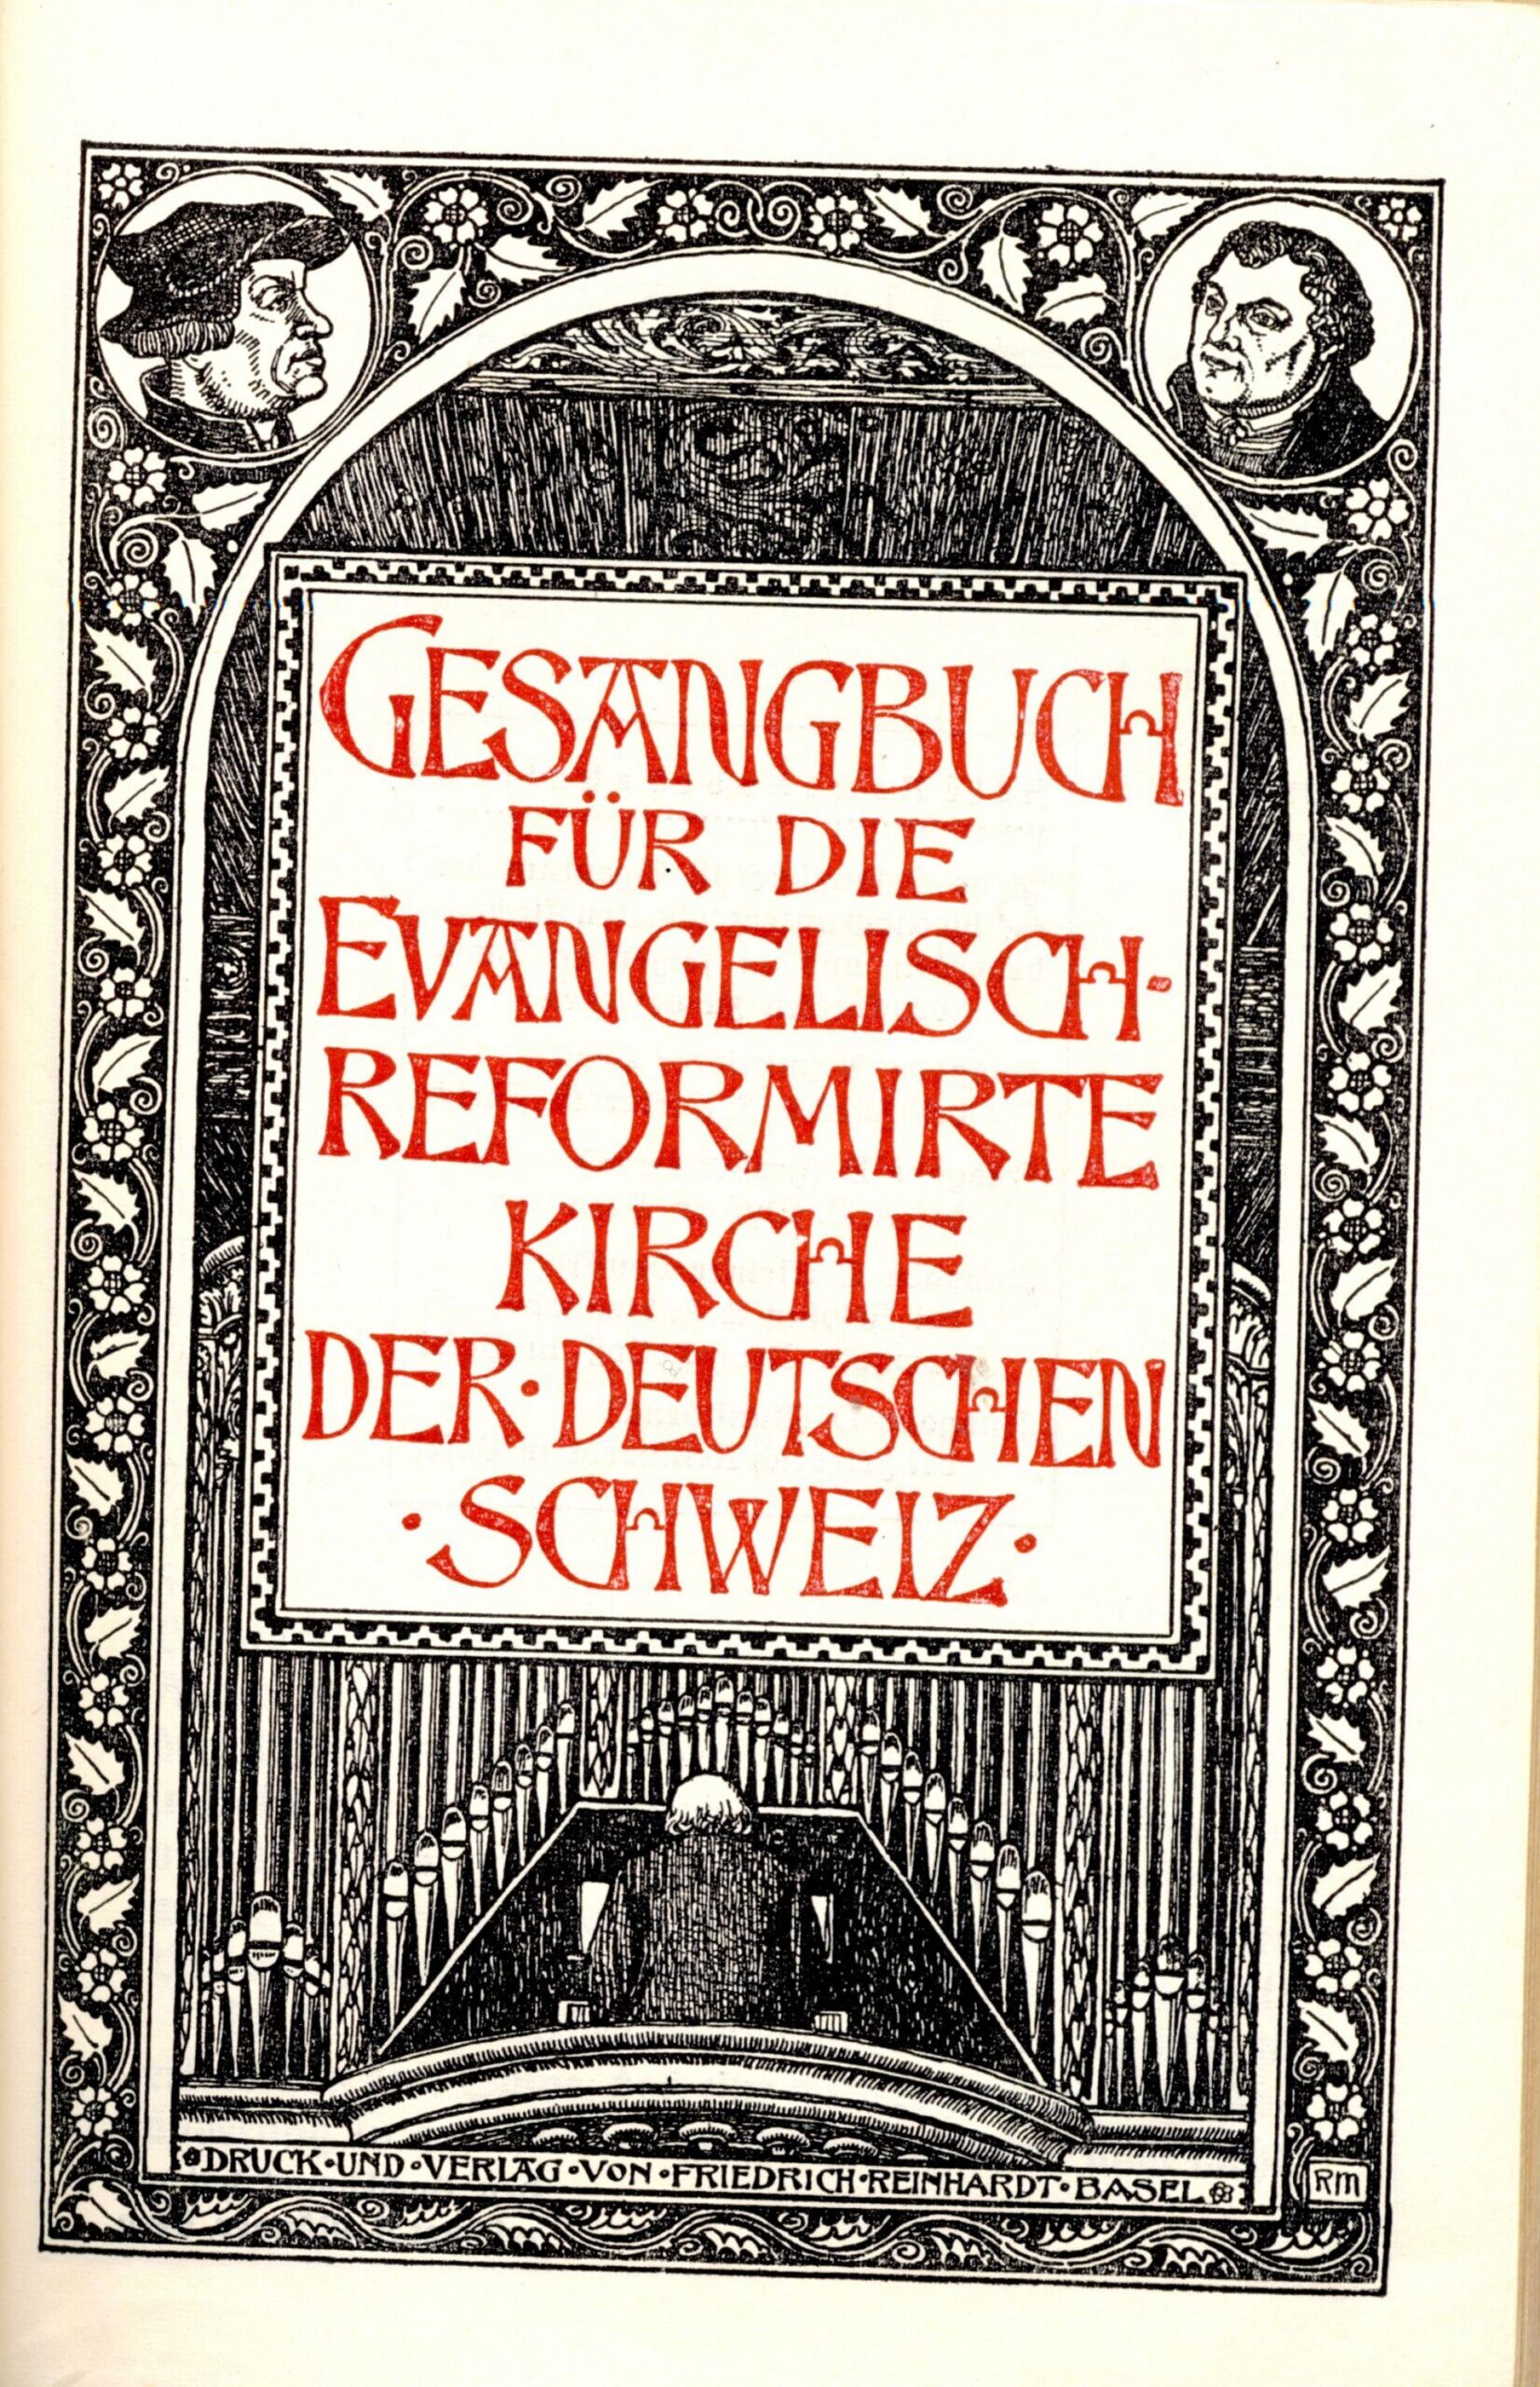 GESANGBUCH
FÜR DIE
EVANGELISCH-
REFORMIRTE
KIRCHE
DER·DEUTSCHEN
·SCHWEIZ·
DRUCK·UND·VERLAG·VON·FRIEDRICH·REINHARDT·BASEL
RM